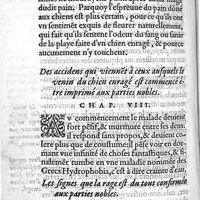 duit pain. Parquoy l'espreuue du pain don
aux chiens est plus certain, pour ce qu'ils ont
vn sentimét exquis de fleurer naturellement,
qui fait qu'ils sentent l'odeur du sang ou sanie
de la playe faite d'vn chien enragé, & pource
aucunement n'y touchent.
Des accidens qui viennét à ceux ausquels le
venin du chien enragé est commencé e-
stre imprimé aux parties nobles.
CHAP. VIII.
V commencement le malade deuient
fort pésif, & murmure entre les dens
respond sans propos, & dessus
plus que de coustume il pése voir de-
vne infinité de choses fantastiques, &
nalemét tumbe en vne maladie nommée des
Grecs Hydrophobia, c'est crainte d'eau.
Les signes que la rage est du tout confirmée
aux parties nobles.